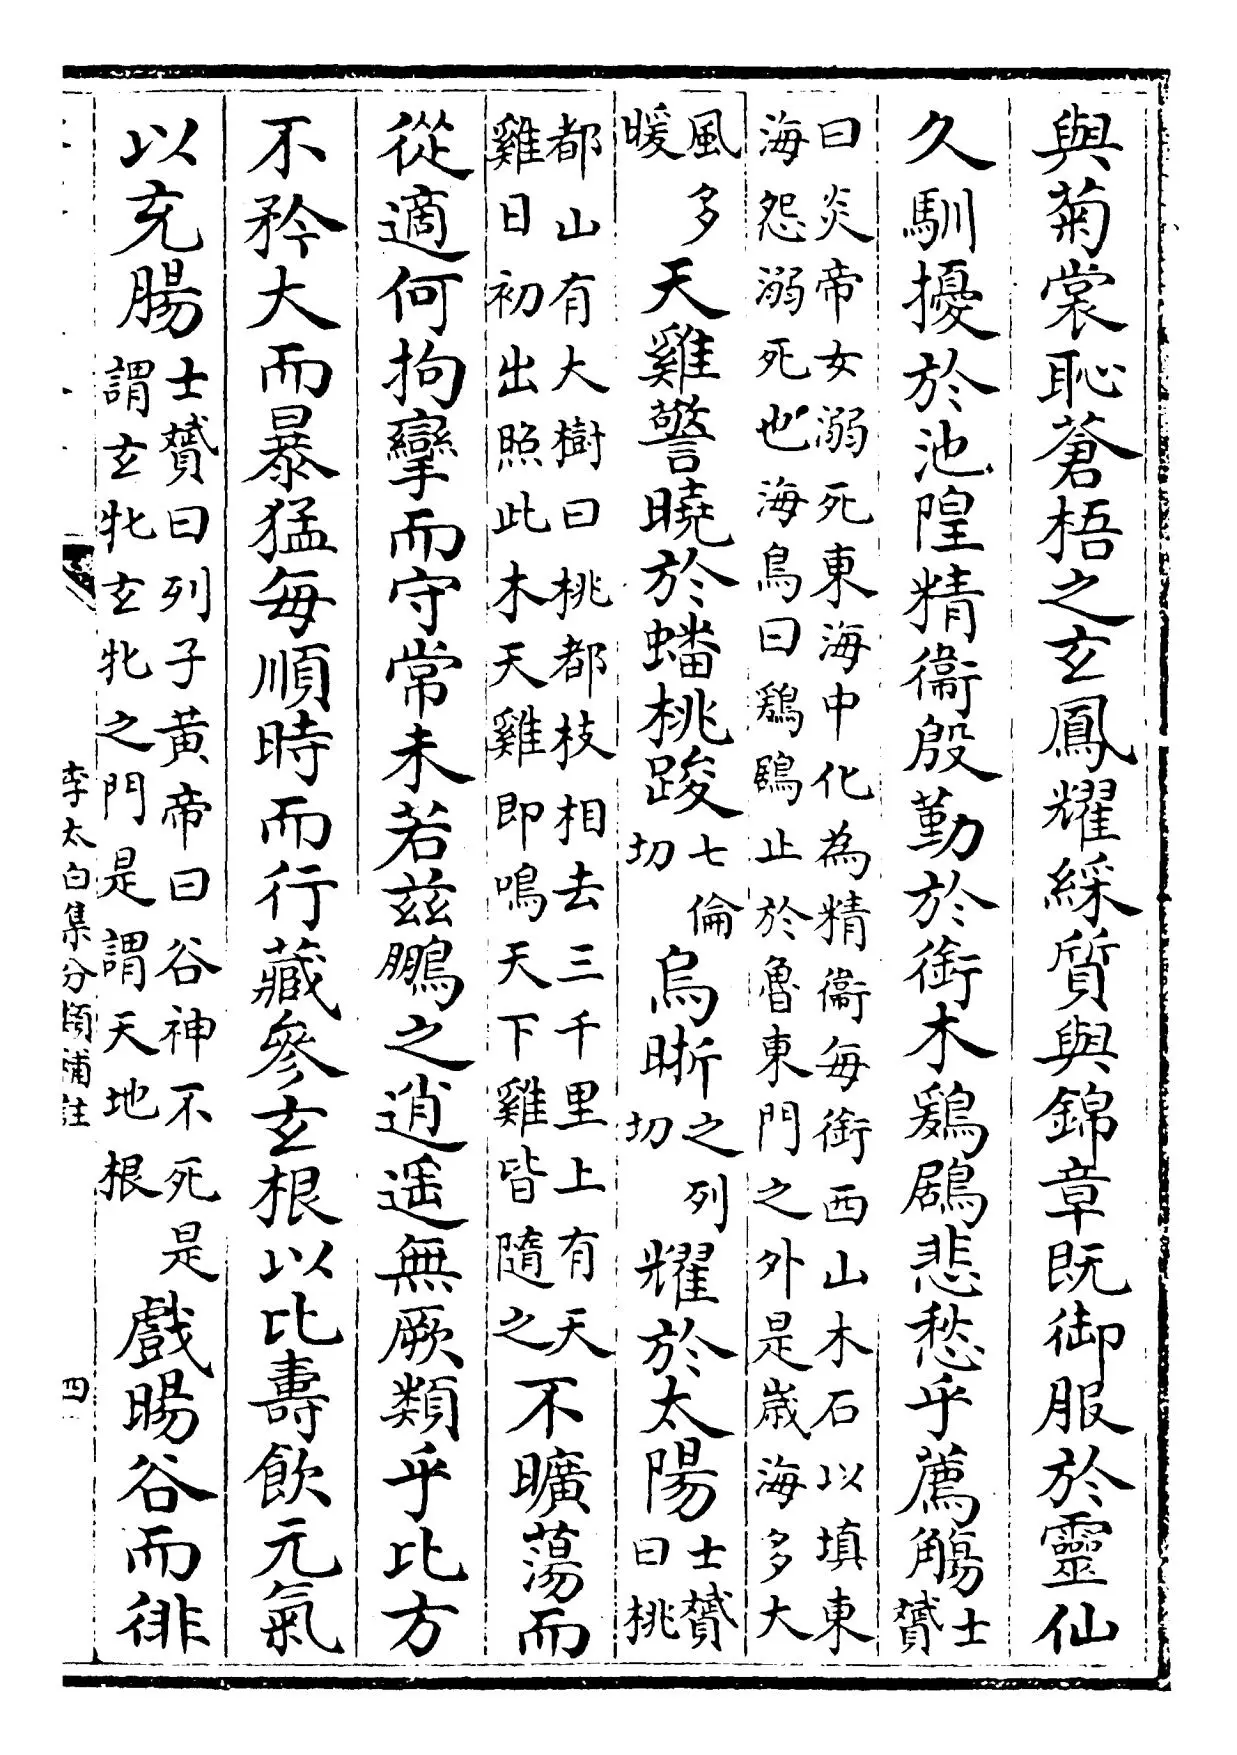 與菊裳恥蒼梧之玄鳳耀綵質與錦章既御服於靈仙
久馴擾於池隍精衞殷勤於銜木鶢鶋悲愁乎薦觴士
贇
曰炎帝女溺死東海中化為精衞每銜西山木石以填東
海怨溺死也海鳥曰鶢鶋止於魯東門之外是歳海多大
風多
暖
天雞警曉於蟠桃踆七倫
切
烏晣之列
切
耀於太陽士贇
曰桃
都山有大樹曰桃都枝相去三千里上有天
雞日初出照此木天雞即鳴天下雞皆隨之
不曠蕩而
從適何拘攣而守常未若兹鵬之逍遥無厥類乎比方
不矜大而暴猛每順時而行藏參玄根以比壽飲元氣
以充腸士贇曰列子黄帝曰谷神不死是
謂玄牝玄牝之門是謂天地根
戲暘谷而徘
李太白集分類補註
四